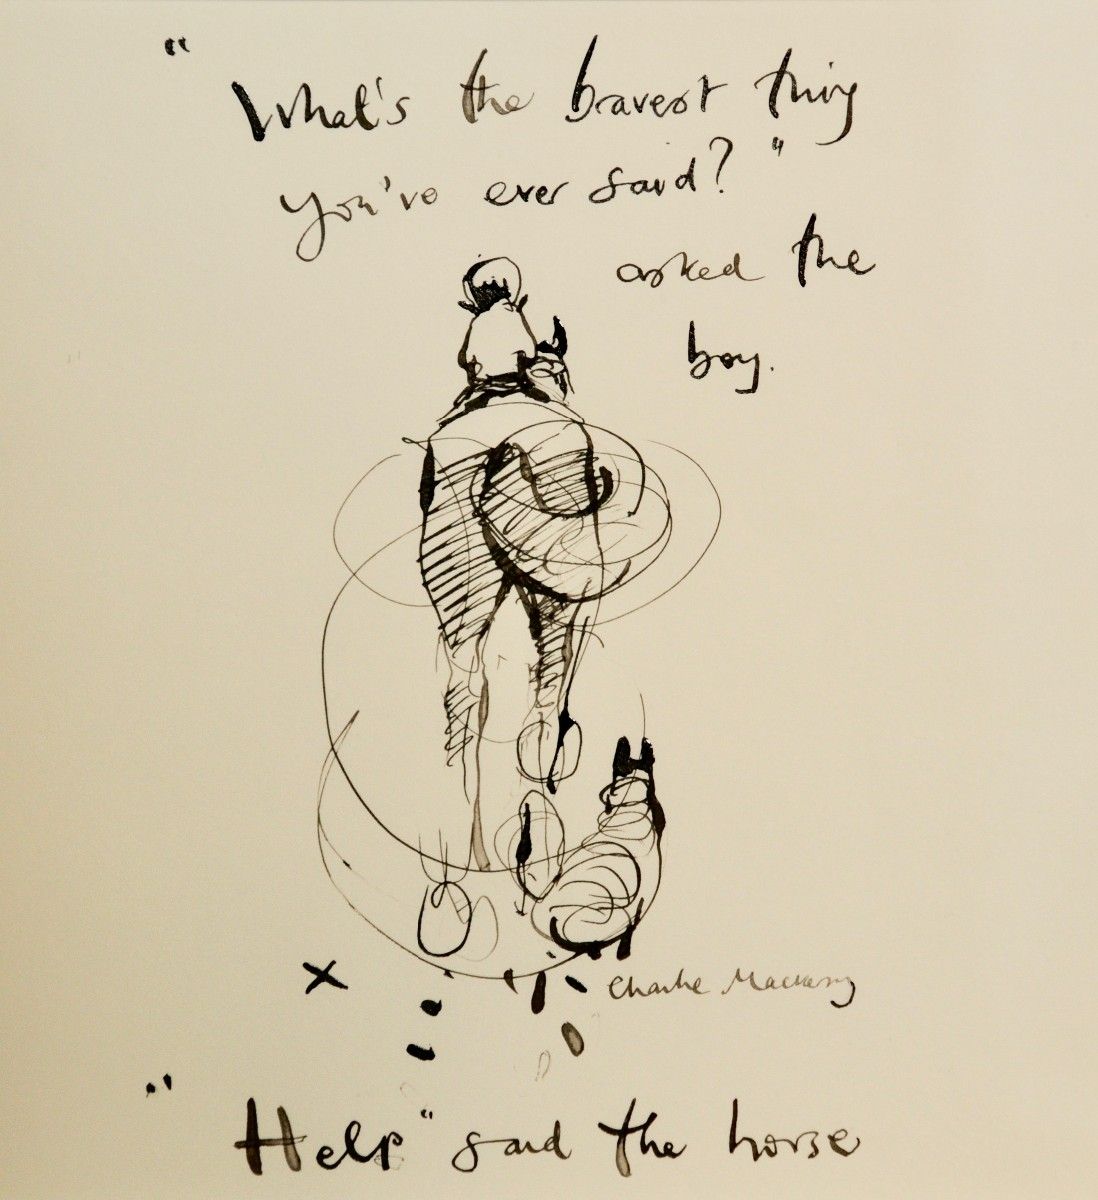 "What's the bravest thing
you've ever said?"
asked the
boy.
Charlie Mackesy
"Help" said the horse